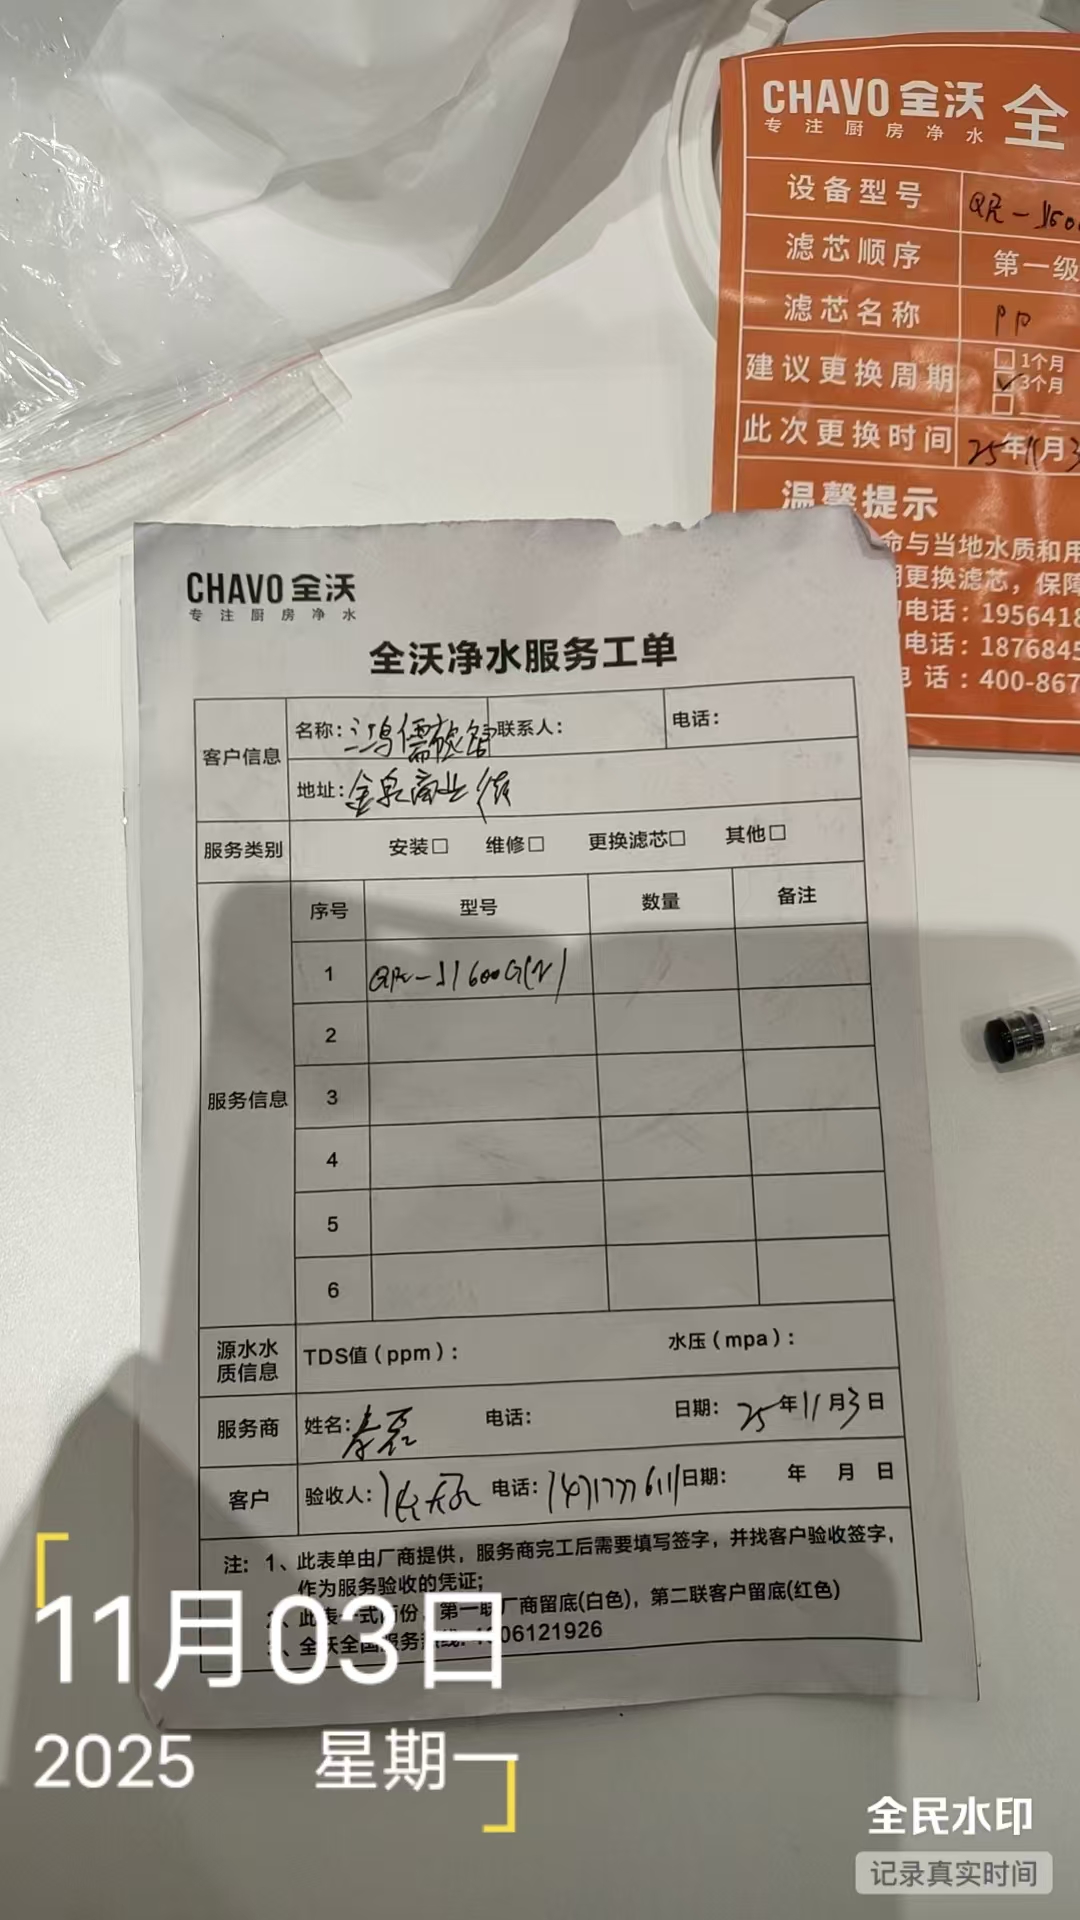 CHAVO 全沃 全
专注厨房净水
设备型号
滤芯顺序 第一级
滤芯名称 PP
建议更换周期 □1个月
☑3个月
□
此次更换时间 25年11月3
温馨提示
命与当地水质和用
更换滤芯，保障
电话：1956418
电话：1876845
话：400-867
CHAVO 全沃
专注厨房净水
全沃净水服务工单
客户信息 名称：鸿儒 联系人： 电话：
地址：金泉商业街
服务类别 安装□ 维修□ 更换滤芯□ 其他□
服务信息 序号 型号 数量 备注
1
2
3
4
5
6
源水水质信息 TDS值（ppm）： 水压（mpa）：
服务商 姓名：秦磊 电话： 日期：25年11月3日
客户 验收人： 电话： 日期： 年 月 日
注：1、此表单由厂商提供，服务商完工后需要填写签字，并找客户验收签字，
作为服务验收的凭证；
2、此表一式两份，第一联厂商留底(白色)，第二联客户留底(红色)
3、全沃全国服务热线：4006121926
11月03日
2025 星期一
全民水印
记录真实时间